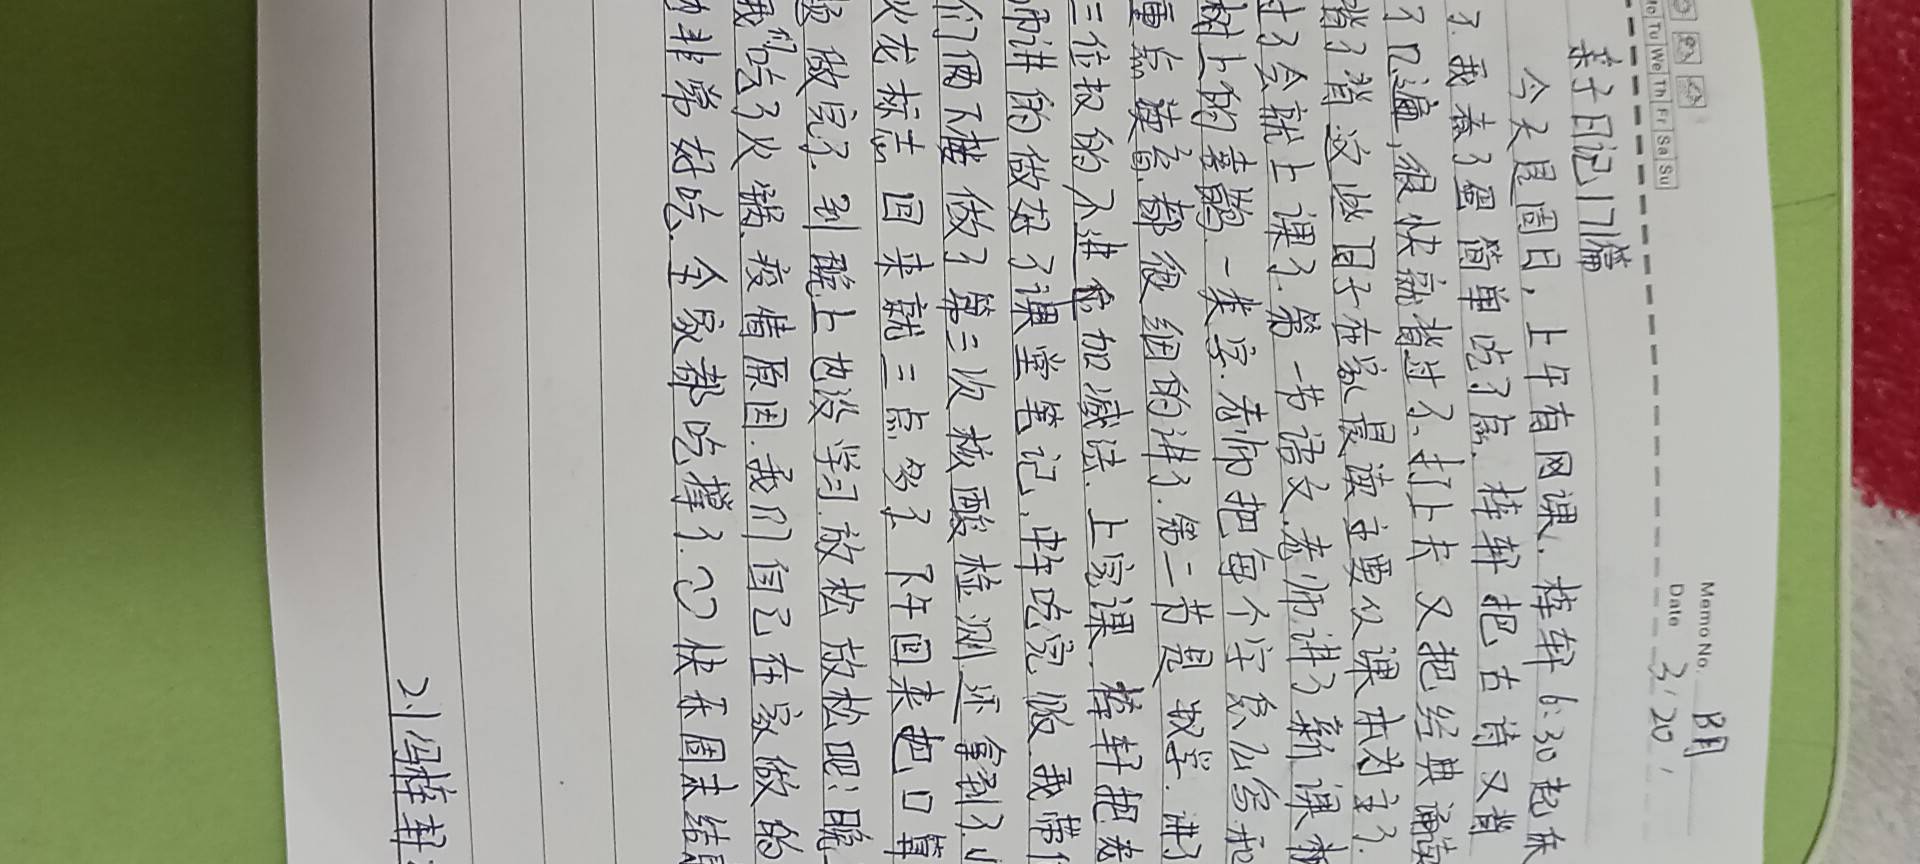 Memo No. 明
Mo Tu We Th Fr Sa Su
Date 3/20/
亲子日记17篇
今天是周日，上午有网课.梓轩6:30起床
了.我煮了蛋简单吃了点.梓轩把古诗又背
了几遍,很快就背过了、打上卡又把经典诵读
背了背这做日子在家晨读主要以课本为主了.
过了会就上课了.第一节语文.老师讲了新课
树上的喜鹊.一类字.老师把每个字怎么写
重点读音.都很细的讲了.第二节是数学.讲了
三位数的不进位加减法.上完课.梓轩把老
师讲的做好了课堂笔记,中午吃完饭我带
们俩下楼做了第三次核酸检测还拿到了小
火龙标志回来就三点多了.下午回来把口算
做完了.到晚上也没学习.放松放松吧!晚
我们吃了火锅.疫情原因.我们自己在家做的
的非常好吃.全家都吃撑了.快乐周末结
刘冯梓轩